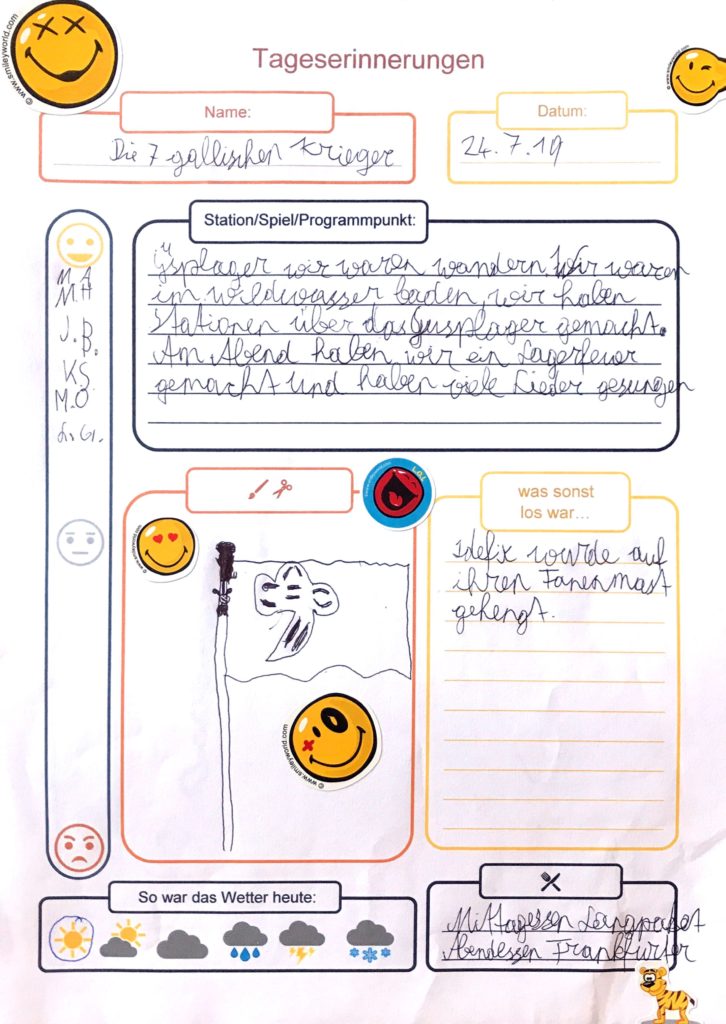 © www.smileyworld.com
Tageserinnerungen
Name:
Die 7 gallischen Krieger
Datum:
24.7.19
Station/Spiel/Programmpunkt:
wir waren wandern. Wir waren
im wildwasser baden, wir haben
Stationen über das Gusplager gemacht.
Am Abend haben wir ein Lagerfeuer
gemacht und haben viele Lieder gesungen
M A
M.H
J.B.
K.S.
M.O.
L. G.
LOL
was sonst
los war...
Idefix wurde auf
ihren Fanenmast
gehengt.
© www.smileyworld.com
© www.smileyworld.com
So war das Wetter heute:
Mittagessen
Abendessen Frankfurter